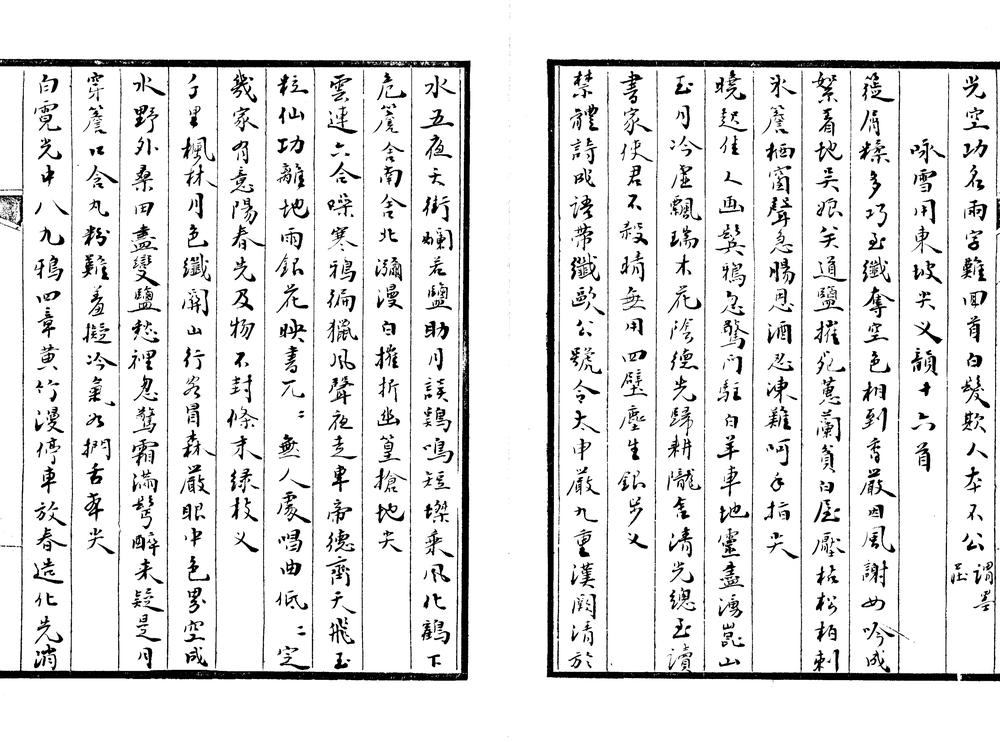 光空功名兩字難回首白髮欺人本不公謂晏莊
咏雪用東坡尖叉韻十六首
篵屑糅多巧玉纖奪空色相到香嚴因風謝女吟成
絮着地吳娘笑道鹽摧宛蕙蘭貧白屋壓枯松柏刺
氷簷栖窗聲急賜恩酒忍凍難呵手指尖
曉起佳人画鬂鴉忽驚門駐白羊車地靈盡湧崑山
玉月冷虛飄瑞木花陰德光歸耕隴舍清光總玉讀
書家使君不殺晴無用四壁塵生銀步叉
禁體詩成語帶纖歐公號令太申嚴九重漢闕清於
水五夜天街爛若鹽助月談鷄鳴短㙩乘風化鶴下
危簷舍南舍北瀰漫白摧折幽篁搶地尖
雲連六合噪寒鴉徧獵風聲夜走車帝德齊天飛玉
粒仙功離地雨銀花映書兀兀無人處唱曲低低定
幾家有意陽春先及物不封條末緑枝叉
千里楓林月色纖關山行客冒森嚴眼中色界空成
水野外桑田盡變鹽愁裡忽驚霜滿髩醉来疑是月
穿簷口含丸粉難羞擬冷氣如捫舌本尖
白霓光中八九鴉四章黄竹漫停車放春造化先消